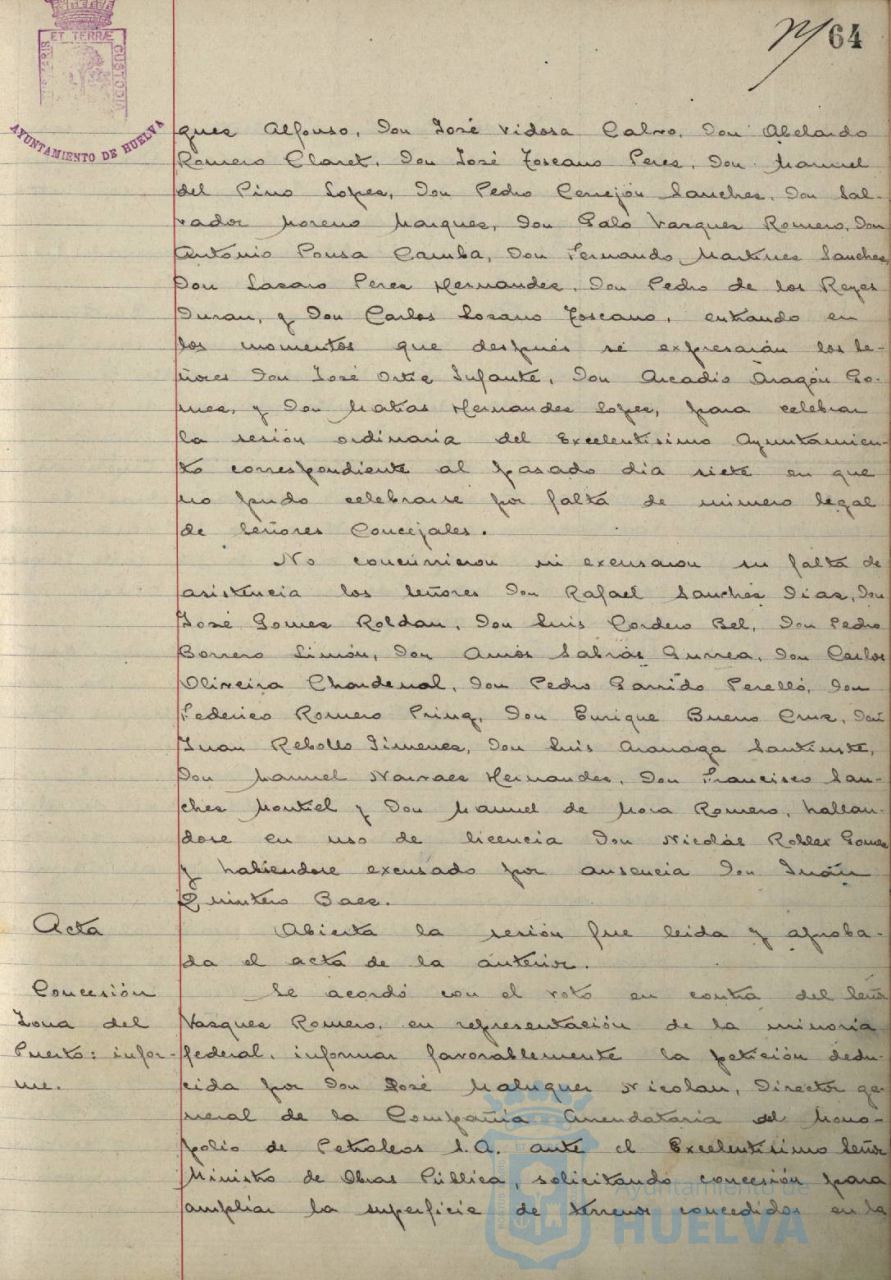 64
ET TERRÆ
CUSTODIA
AYUNTAMIENTO DE HUELVA
ques Alfonso, Don José Vidosa Calvo, Don Abelardo
Romero Claret, Don José Toscano Peres, Don Manuel
del Pino Lopes, Don Pedro Cerrejón Sanches, Don Sal-
vador Moreno Marques, Don Galo Vasques Romero, Don
Antonio Pousa Camba, Don Fernando Martines Sanches,
Don Lasaro Peres Hernandes, Don Pedro de los Reyes
Duran, y Don Carlos Losano Toscano, entrando en
los momentos que después se expresarán los Se-
ñores Don José Ortis Infante, Don Arcadio Aragón Go-
mes, y Don Matias Hernandes Lopes, para celebrar
la sesión ordinaria del Excelentisimo Ayuntamien-
to correspondiente al pasado dia siete en que
no pudo celebrarse por falta de número legal
de Señores Concejales.
No concurrieron ni excusaron su falta de
asistencia los Señores Don Rafael Sanches Dias, Don
José Gomes Roldan, Don Luis Cordero Bel, Don Pedro
Borrero Limón, Don Amós Sabrás Gurrea, Don Carlos
Oliveira Chardenal, Don Pedro Garrido Perelló, Don
Federico Romero Pring, Don Enrique Bueno Crus, Don
Juan Rebollo Jimenes, Don Luis Aranaga Santiuste,
Don Manuel Narvaes Hernandes, Don Francisco San-
ches Montiel y Don Manuel de Mora Romero, hallan-
dose en uso de licencia Don Nicolás Robles Gomes
y habiendose excusado por ausencia Don Juan
Quintero Baes.
Acta
Abierta la sesión fue leida y aproba-
da el acta de la anterior.
Concesión
Zona del
Puerto: infor-
me.
Se acordó con el voto en contra del Señor
Vasques Romero, en representación de la minoria
federal, informar favorablemente la petición dedu-
cida por Don José Maluquer Nicolau, Director ge-
neral de la Compañia Arrendataria del Mono-
polio de Petroleos S.A. ante el Excelentisimo Señor
Ministro de Obras Pública, solicitando concesión para
ampliar la superficie de terrenos concedidos en la
Ayuntamiento de
HUELVA